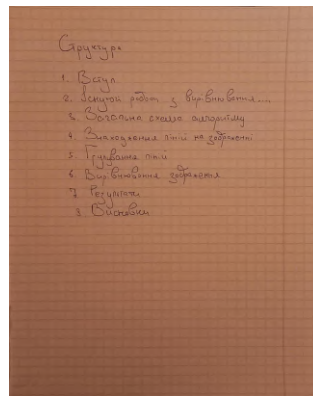 Структура
1. Вступ
2. Існуючі роботи з вирівнювання....
3. Загальна схема алгоритму
4. Знаходження ліній на зображенні
5. Групування ліній
6. Вирівнювання зображення
7. Результати
8. Висновки